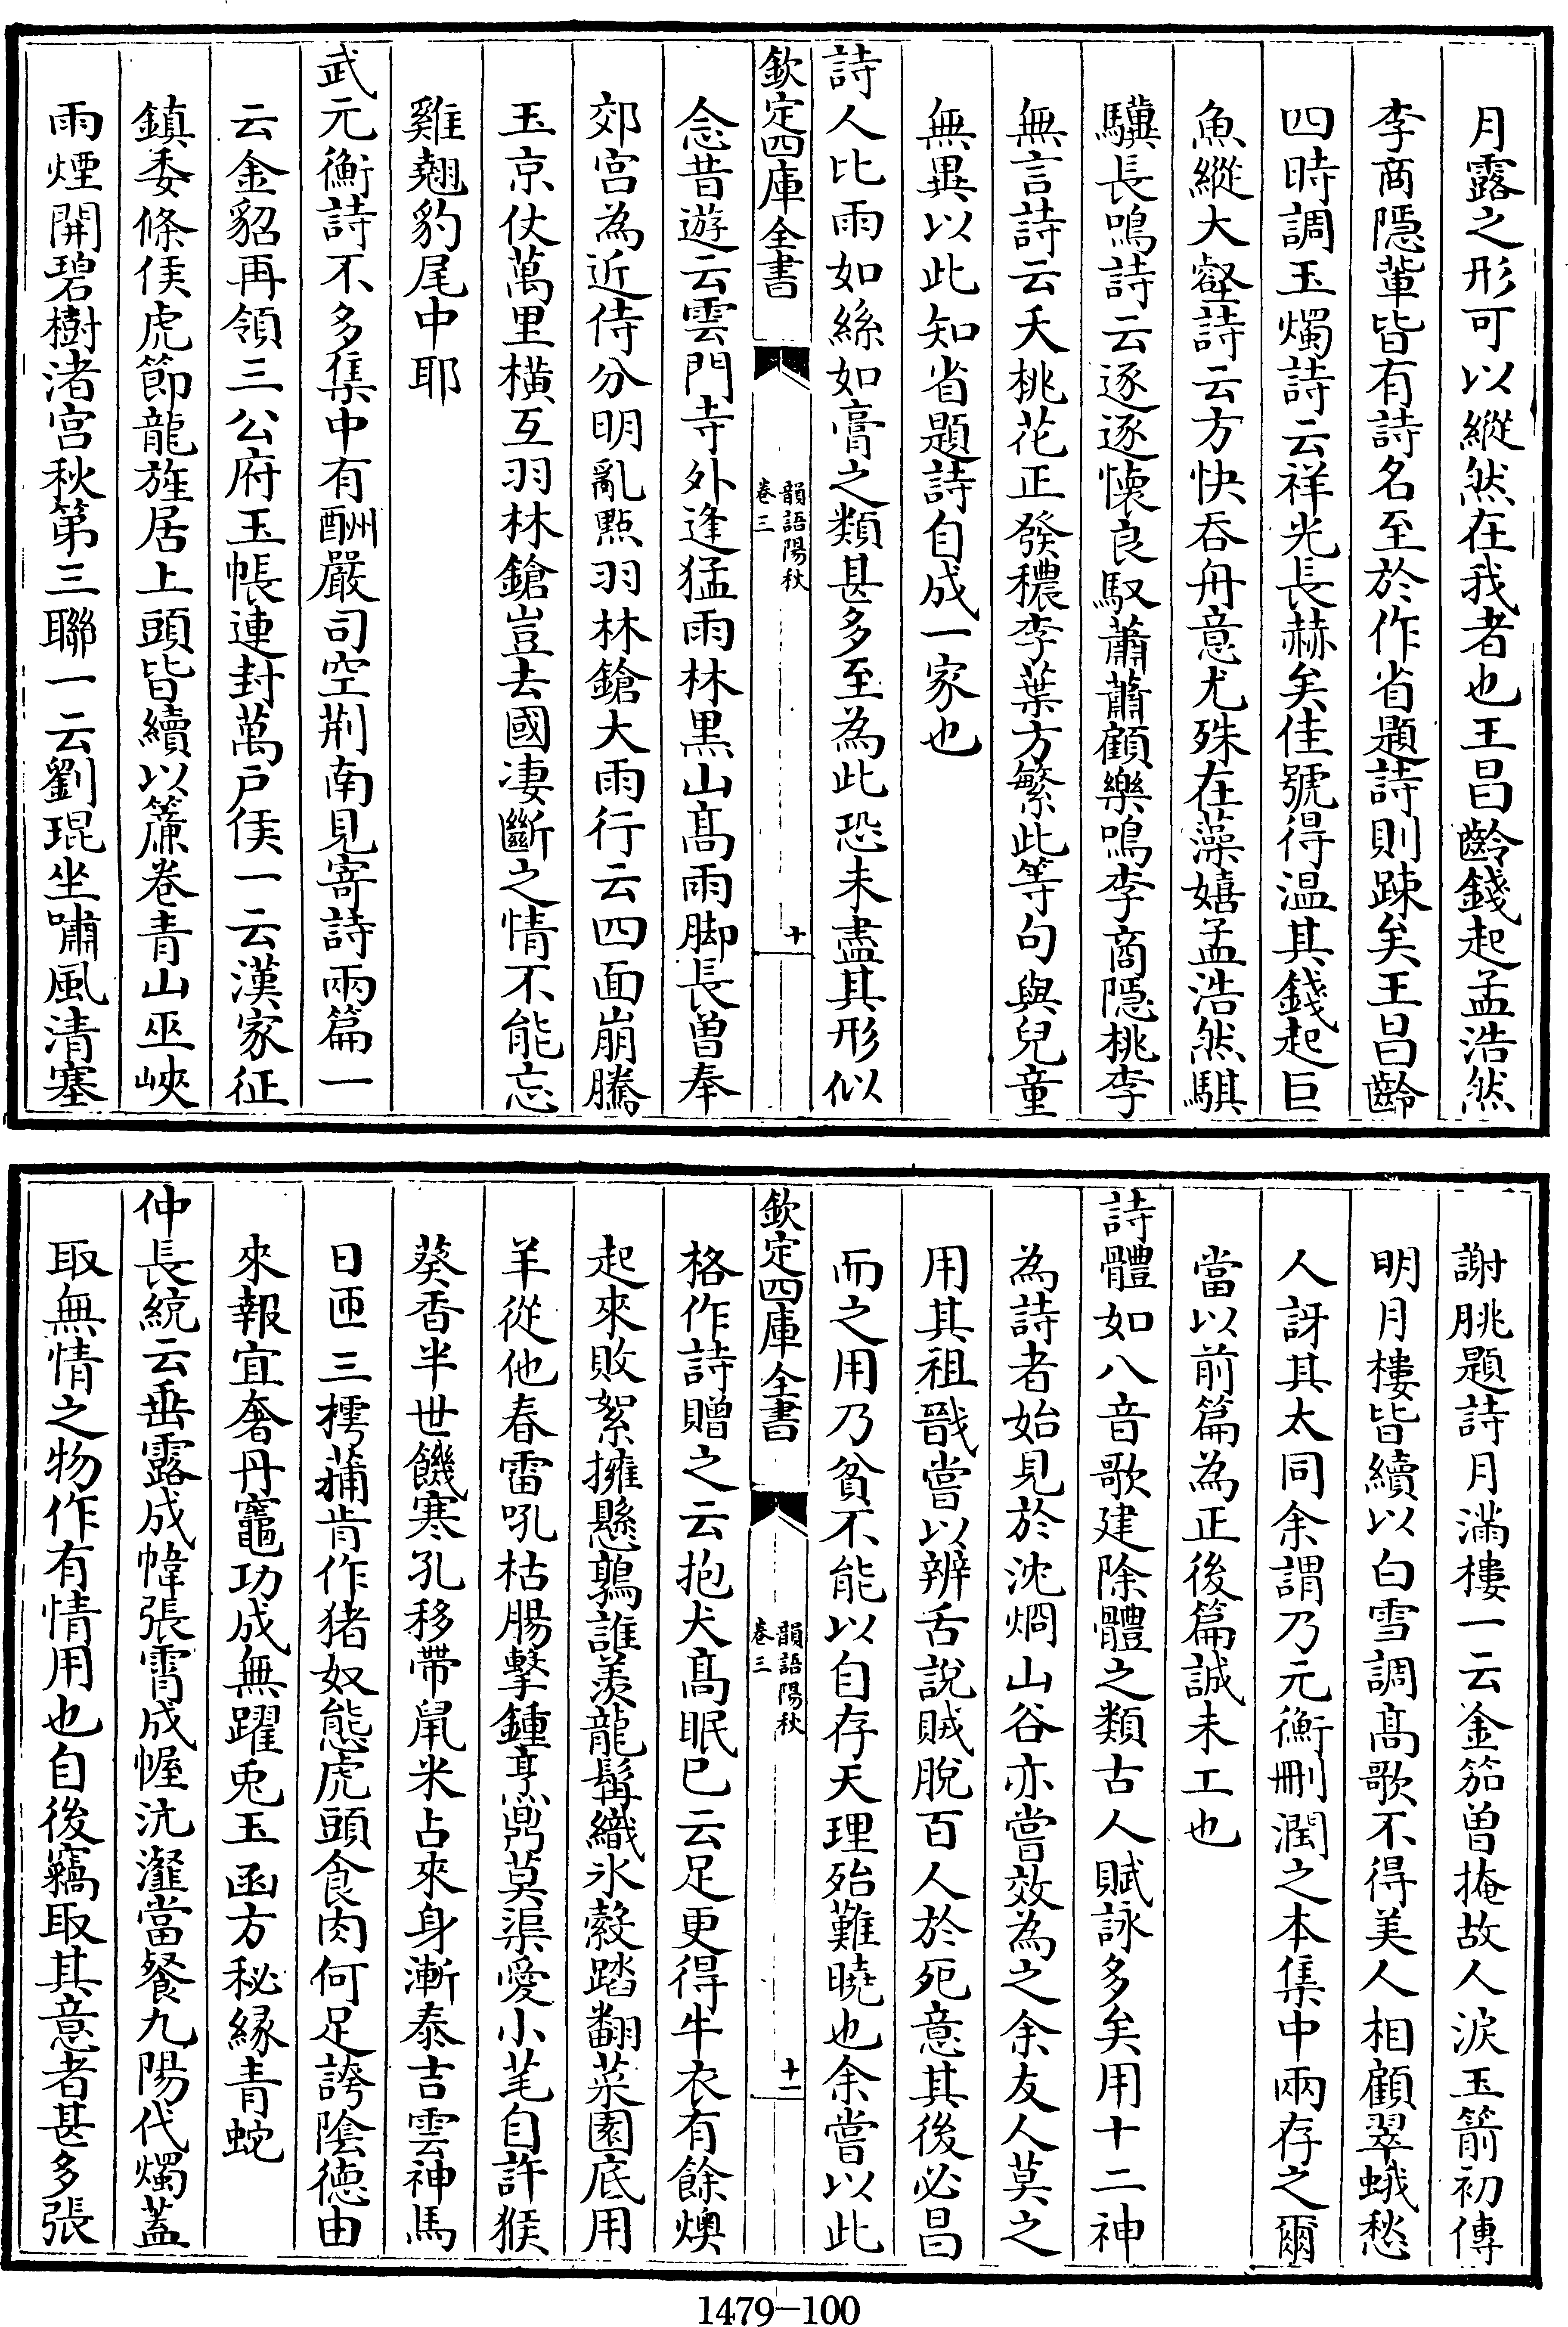 月露之形可以縱然在我者也王昌齡錢起孟浩然
李商隱輩皆有詩名至於作省題詩則踈矣王昌齡
四時調玉燭詩云祥光長赫矣佳號得温其錢起巨
魚縱大壑詩云方快吞舟意尤殊在藻嬉孟浩然騏
驥長鳴詩云逐逐懷良馭蕭蕭顧樂鳴李商隱桃李
無言詩云夭桃花正發穠李葉方繁此等句與兒童
無異以此知省題詩自成一家也
詩人比雨如絲如膏之類甚多至為此恐未盡其形似
欽定四庫全書
韻語陽秋
卷三
十
念昔遊云雲門寺外逢猛雨林黑山髙雨脚長曽奉
郊宫為近侍分明亂㸃羽林鎗大雨行云四面崩騰
玉京仗萬里橫亙羽林鎗豈去國凄斷之情不能忘
雞翹豹尾中耶
武元衡詩不多集中有酬嚴司空荆南見寄詩兩篇一
云金貂再領三公府玉帳連封萬户侯一云漢家征
鎮委條侯虎節龍旌居上頭皆續以簾卷青山巫峽
雨煙開碧樹渚宫秋第三聯一云劉琨坐嘯風清塞
謝朓題詩月滿樓一云金笳曽掩故人淚玉箭初傳
明月樓皆續以白雪調髙歌不得美人相顧翠蛾愁
人訝其太同余謂乃元衡刪潤之本集中兩存之爾
當以前篇為正後篇誠未工也
詩體如八音歌建除體之類古人賦詠多矣用十二神
為詩者始見於沈烱山谷亦嘗效為之余友人莫之
用其祖戩嘗以辨舌說賊脫百人於死意其後必昌
而之用乃貧不能以自存天理殆難曉也余嘗以此
欽定四庫全書
韻語陽秋
卷三
十一
格作詩贈之云抱犬髙眠已云足更得牛衣有餘燠
起來敗絮擁懸鶉誰羨龍髯織氷縠踏翻菜園底用
羊從他春雷吼枯腸擊鍾烹鼎莫渠愛小芼自許猴
葵香半世饑寒孔移帶鼠米占來身漸泰吉雲神馬
日匝三樗蒲肯作猪奴態虎頭食肉何足誇陰德由
來報宜奢丹竈功成無躍兎玉函方秘縁青蛇
仲長統云垂露成幃張霄成幄沆瀣當餐九陽代燭蓋
取無情之物作有情用也自後竊取其意者甚多張
1479—100